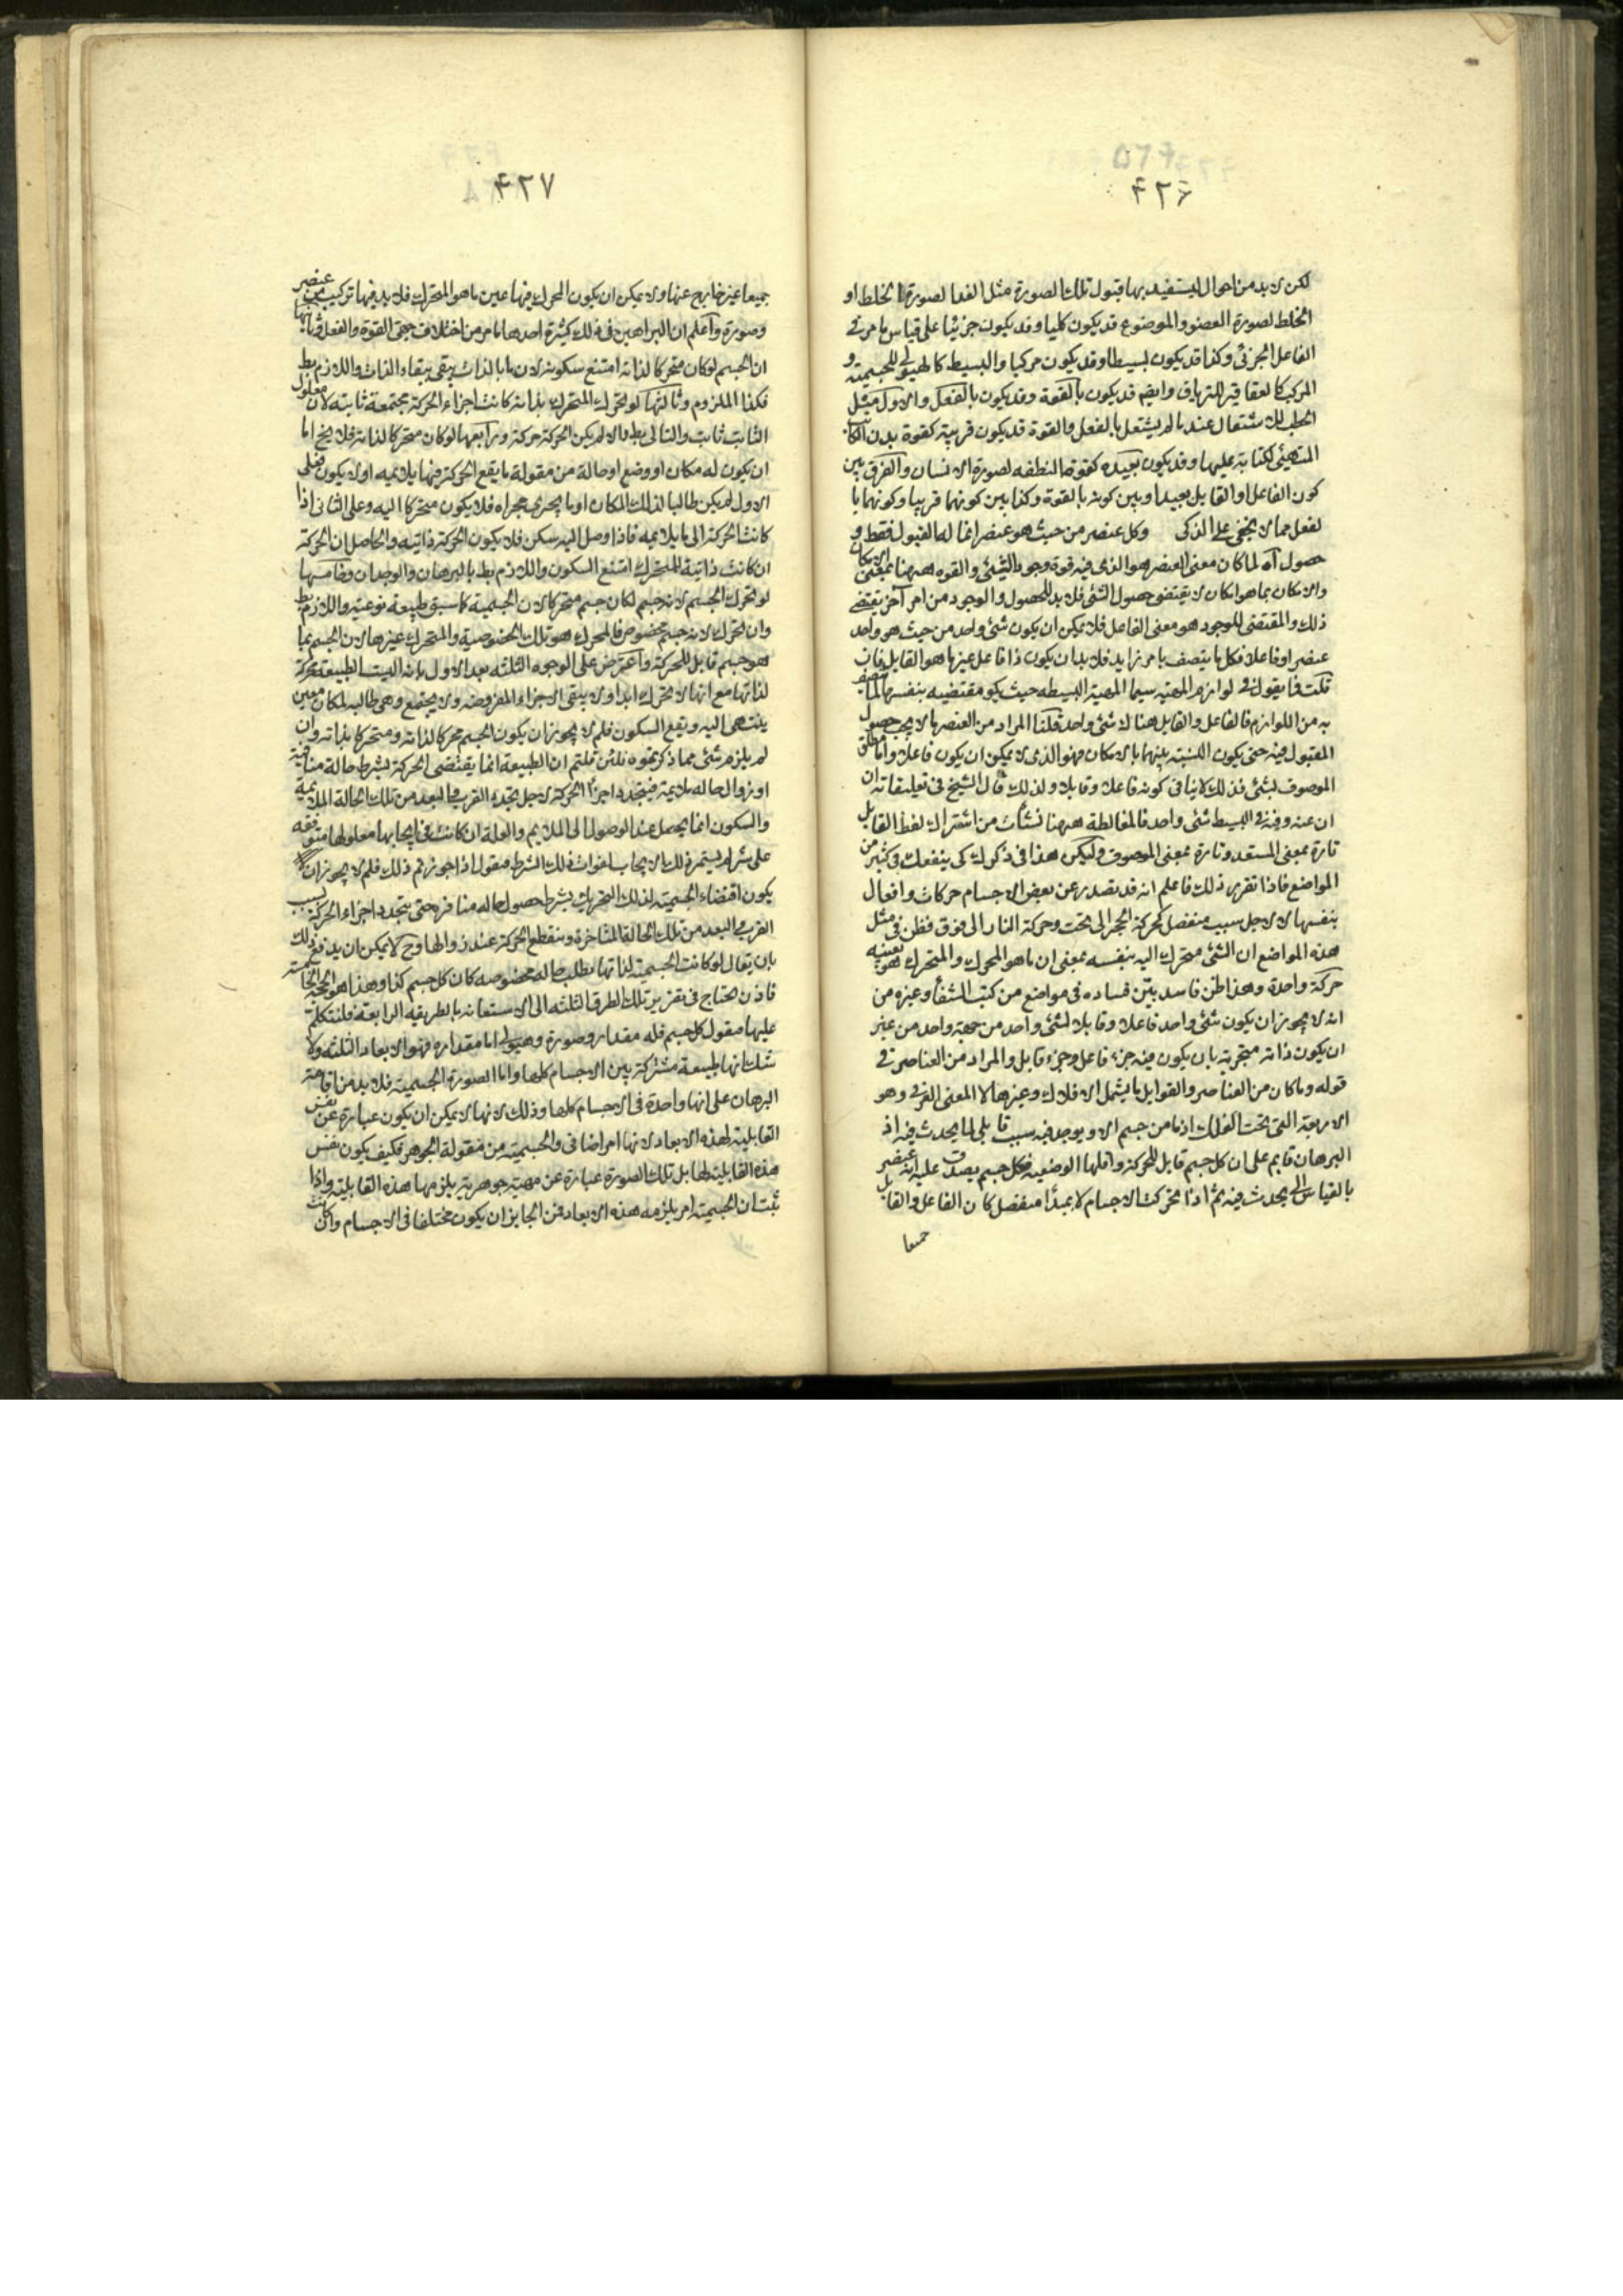 ۴۲۶
لكن لا بد من احوال ليستفيد بها قبول تلك الصورة مثل الغذا لصورة الخلط او
الخلط لصورة العضو والموضوع قد يكون كليا وقد يكون جزئيا على قياس ما مر في
الفاعل الجزئى وكذا قد يكون بسيطا وقد يكون مركبا والبسيط كالهيولى للجسمية و
المركب كالعقاقير للترياق وايضم قد يكون بالقوة وقد يكون بالفعل والاول مثل
الحطب للاشتعال عند ما لم يشتعل بالفعل والقوة قد يكون قريبة كقوة بدن الكاتب
المتهيئ لكتابة عليها وقد يكون بعيدة كقوة النطفه لصورة الانسان والفرق بين
كون الفاعل او القابل بعيدا وبين كونه بالقوة وكذا بين كونهما قريبا وكونهما با
لفعل مما لا يخفى على الذكى وكل عنصر من حيث هو عنصر انما له القبول فقط و
حصول آه لما كان معنى العنصر هو الذى فيه قوة وجود الشيئ والقوه ههنا بمعنى الامكان
والامكان بما هو امكان لا يقتضى حصول الشئ فلا بد للحصول والوجود من امر آخر يقتضى
ذلك والمقتضى للوجود هو معنى الفاعل فلا يمكن ان يكون شئ واحد من حيث هو واحد
عنصرا وفاعلا فكل ما يتصف بامر زايد فلا بد ان يكون ذا فاعل غير ما هو القابل فان
قلت فما يقول فى لوازم المهية سيما المهية البسيطه حيث يكو مقتضيه بنفسها لما يتصف
به من اللوازم فالفاعل والقابل هناك شئ واحد قلنا المراد من العنصر ما لا يجب حصول
المقبول فيه حتى يكون النسبة بينهما بالامكان فهو الذى لا يمكن ان يكون فاعلا واما مطلق
الموصوف لشئ فذلك لا ينافى كونه فاعلا وقابلا ولذلك قال الشيخ فى تعليقاته ان
ان عنه وفيه فى البسيط شئ واحد فالمغالطه ههنا نشأت من اشتراك لفظ القابل
تارة بمعنى المستعد وتارة بمعنى الموصوف وليكن هذا فى ذكرك كى ينفعك فى كثير من
المواضع فاذا تقرر ذلك فاعلم انه قد يصدر عن بعض الاجسام حركات وافعال
بنفسها لا لاجل سبب منفصل كحركة الحجر الى تحت وحركة النار الى فوق فظن فى مثل
هذه المواضع ان الشئ متحرك اليه بنفسه بمعنى ان ما هو المحرك والمتحرك هو بعينه
حركة واحدة وهذا ظن فاسد بين فساده فى مواضع من كتب الشفا وغيره من
انه لا يجوز ان يكون شئ واحد فاعلا وقابلا لشئ واحد من جهة واحد من غير
ان يكون ذاته متجزية بان يكون فيه جزء فاعل وجزء قابل والمراد من العناصر فى
قوله وما كان من العناصر والقوابل ما يشمل الافلاك وغيرها لا المعنى العرفى وهو
الاربعة التى تحت الفلك اذ ما من جسم الا ويوجد فيه سبب قابلى لما يحدث فيه اذ
البرهان قايم على ان كل جسم قابل للحركة واقلها الوضعيه فكل جسم يصدق عليه انه عنصر
بالقياس الى ما يحدث فيه ثم اذا تحركت الاجسام لا بمبدأ منفصل كان الفاعل والقابل
جميعا
۴۲۷
جميعا غير خارج عنها ولا يمكن ان يكون المحرك فيها عين ما هو المتحرك فلا بد فيها تركيب من عنصر
وصورة واعلم ان البراهين فى ذلك كثيرة احدها ما مر من اختلاف جهتى القوة والفعل وثانيها
ان الجسم لو كان متحركا لذاته امتنع سكونه لان ما بالذات يبقى ببقاء الذات واللازم بط
فكذا الملزوم وثالثها لو تحرك المتحرك بذاته كانت اجزاء الحركة مجتمعة ثابتة لان معلول
الثابت ثابت والتالى بط والا لم يكن الحركة حركة ورابعها لو كان متحركا لذاته فلا يخ اما
ان يكون له مكان او وضع او حالة من مقولة ما يقع الحركة فيها يلايمه او لا يكون فعلى
الاول لم يكن طالبا لذلك المكان او ما يجرى مجراه فلا يكون متحركا اليه وعلى الثانى اذا
كانت الحركة الى ما يلايمه فاذا وصل اليه سكن فلا يكون الحركة ذاتيه والحاصل ان الحركة
ان كانت ذاتية للمتحرك امتنع السكون واللازم بط بالبرهان والوجدان وخامسها
لو تحرك الجسم لانه جسم لكان جسم متحركا لان الجسمية كما سبق طبيعه نوعية واللازم بط
وان تحرك لانه جسم مخصوص فالمحرك هو تلك الخصوصية والمتحرك غيرها لان الجسم بما
هو جسم قابل للحركة واعترض على الوجوه الثلثه بعد الاول بانه اليست الطبيعه محركة
لذاتها مع انها لا تحرك ابدا ولا يبقى الاجزاء المفروضه ولا يجتمع وهى طالبه لمكان معين
ينتهى اليه ويقع السكون فلم لا يجوز ان يكون الجسم محركا لذاته ومتحركا بذاته وان
لم يلزم شئ مما ذكرتموه فلئن قلتم ان الطبيعه انما يقتضى الحركة بشرط حالة منافية
او زوال حاله ملايمة فيتجدد اجزاء الحركة لاجل تجدد القرب والبعد من تلك الحالة الملايمة
والسكون انما يحصل عند الوصول الى الملايم والعلة ان كانت فى ايجابها معلولها متوقفه
على شرط لم يستمر ذلك الايجاب لفوات ذلك الشرط فنقول اذا جوزتم ذلك فلم لا يجوز ان
يكون اقتضاء الجسمية لذلك التحريك بشرط حصول حاله منافره حتى يتجدد اجزاء الحركة بسبب
القرب والبعد من تلك الحالة المتاخرة وينقطع الحركة عند زوالها وح لا يمكن ان يدفع ذلك
بان يقال لو كانت الجسمية لذاتها يطلب حاله مخصوصه كان كل جسم كذا وهذا هو الحجة الخامسة
فاذن يحتاج فى تقرير تلك الطرق الثلثه الى الاستعانه بالطريقه الرابعة فلنتكلم
عليها فنقول كل جسم فله مقدار وصورة وهيولى اما مقداره فهو الابعاد الثلثه ولا
شك انها طبيعة مشتركة بين الاجسام كلها واما الصورة الجسمية فلا بد من اقامة
البرهان على انها واحدة فى الاجسام كلها وذلك لانها لا يمكن ان يكون عبارة عن نفس
القابلية لهذه الابعاد لانها امر اضافى والجسمية من مقولة الجوهر فكيف يكون نفس
هذه القابلية لها بل تلك الصورة عبارة عن مهية جوهرية يلزمها هذه القابلية واذا
ثبت ان الجسمية امر يلزمه هذه الابعاد فمن الجايز ان يكون مختلفا فى الاجسام وان كانت